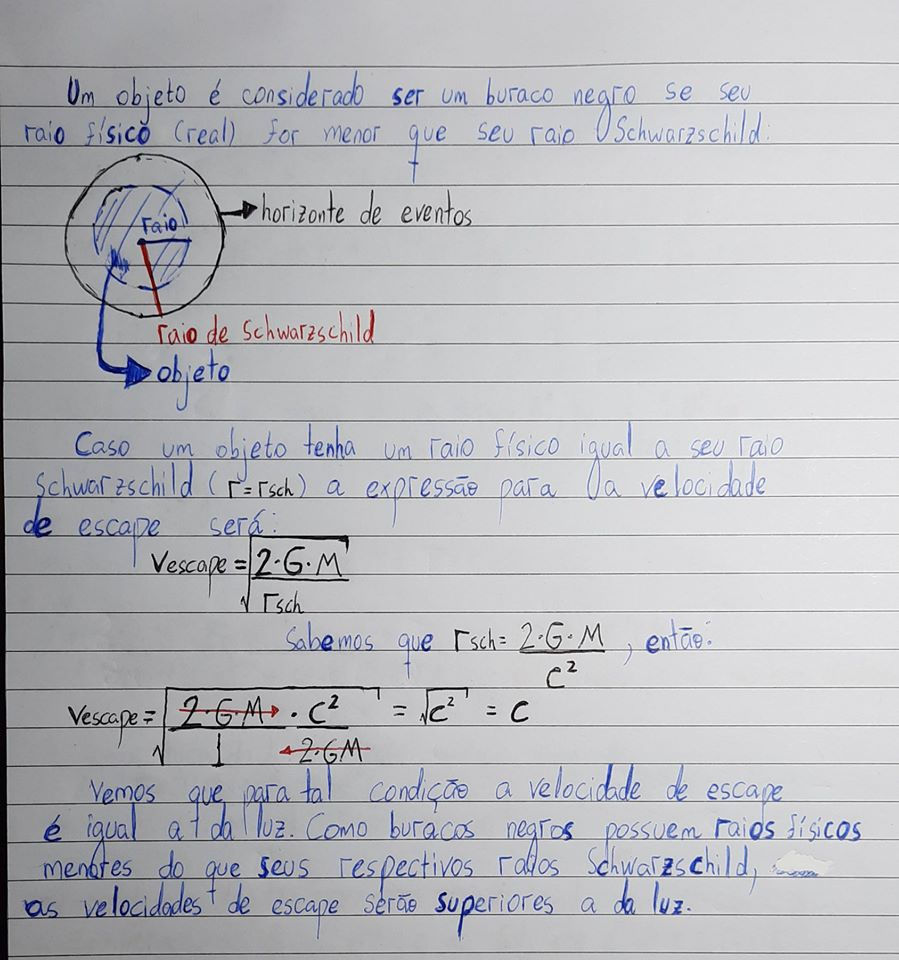 Um objeto é considerado ser um buraco negro se seu
raio físico (real) for menor que seu raio Schwarzschild:
raio
horizonte de eventos
raio de Schwarzschild
objeto
Caso um objeto tenha um raio físico igual a seu raio
Schwarzschild (r=rsch) a expressão para a velocidade
de escape será:
Vescape = √(2·G·M / rsch)
Sabemos que rsch = 2·G·M / c², então:
Vescape = √(2·G·M / 1 · c² / 2·GM) = √c² = c
Vemos que para tal condição a velocidade de escape
é igual a da luz. Como buracos negros possuem raios físicos
menores do que seus respectivos Schwarzschild,
as velocidades de escape serão superiores a da luz.